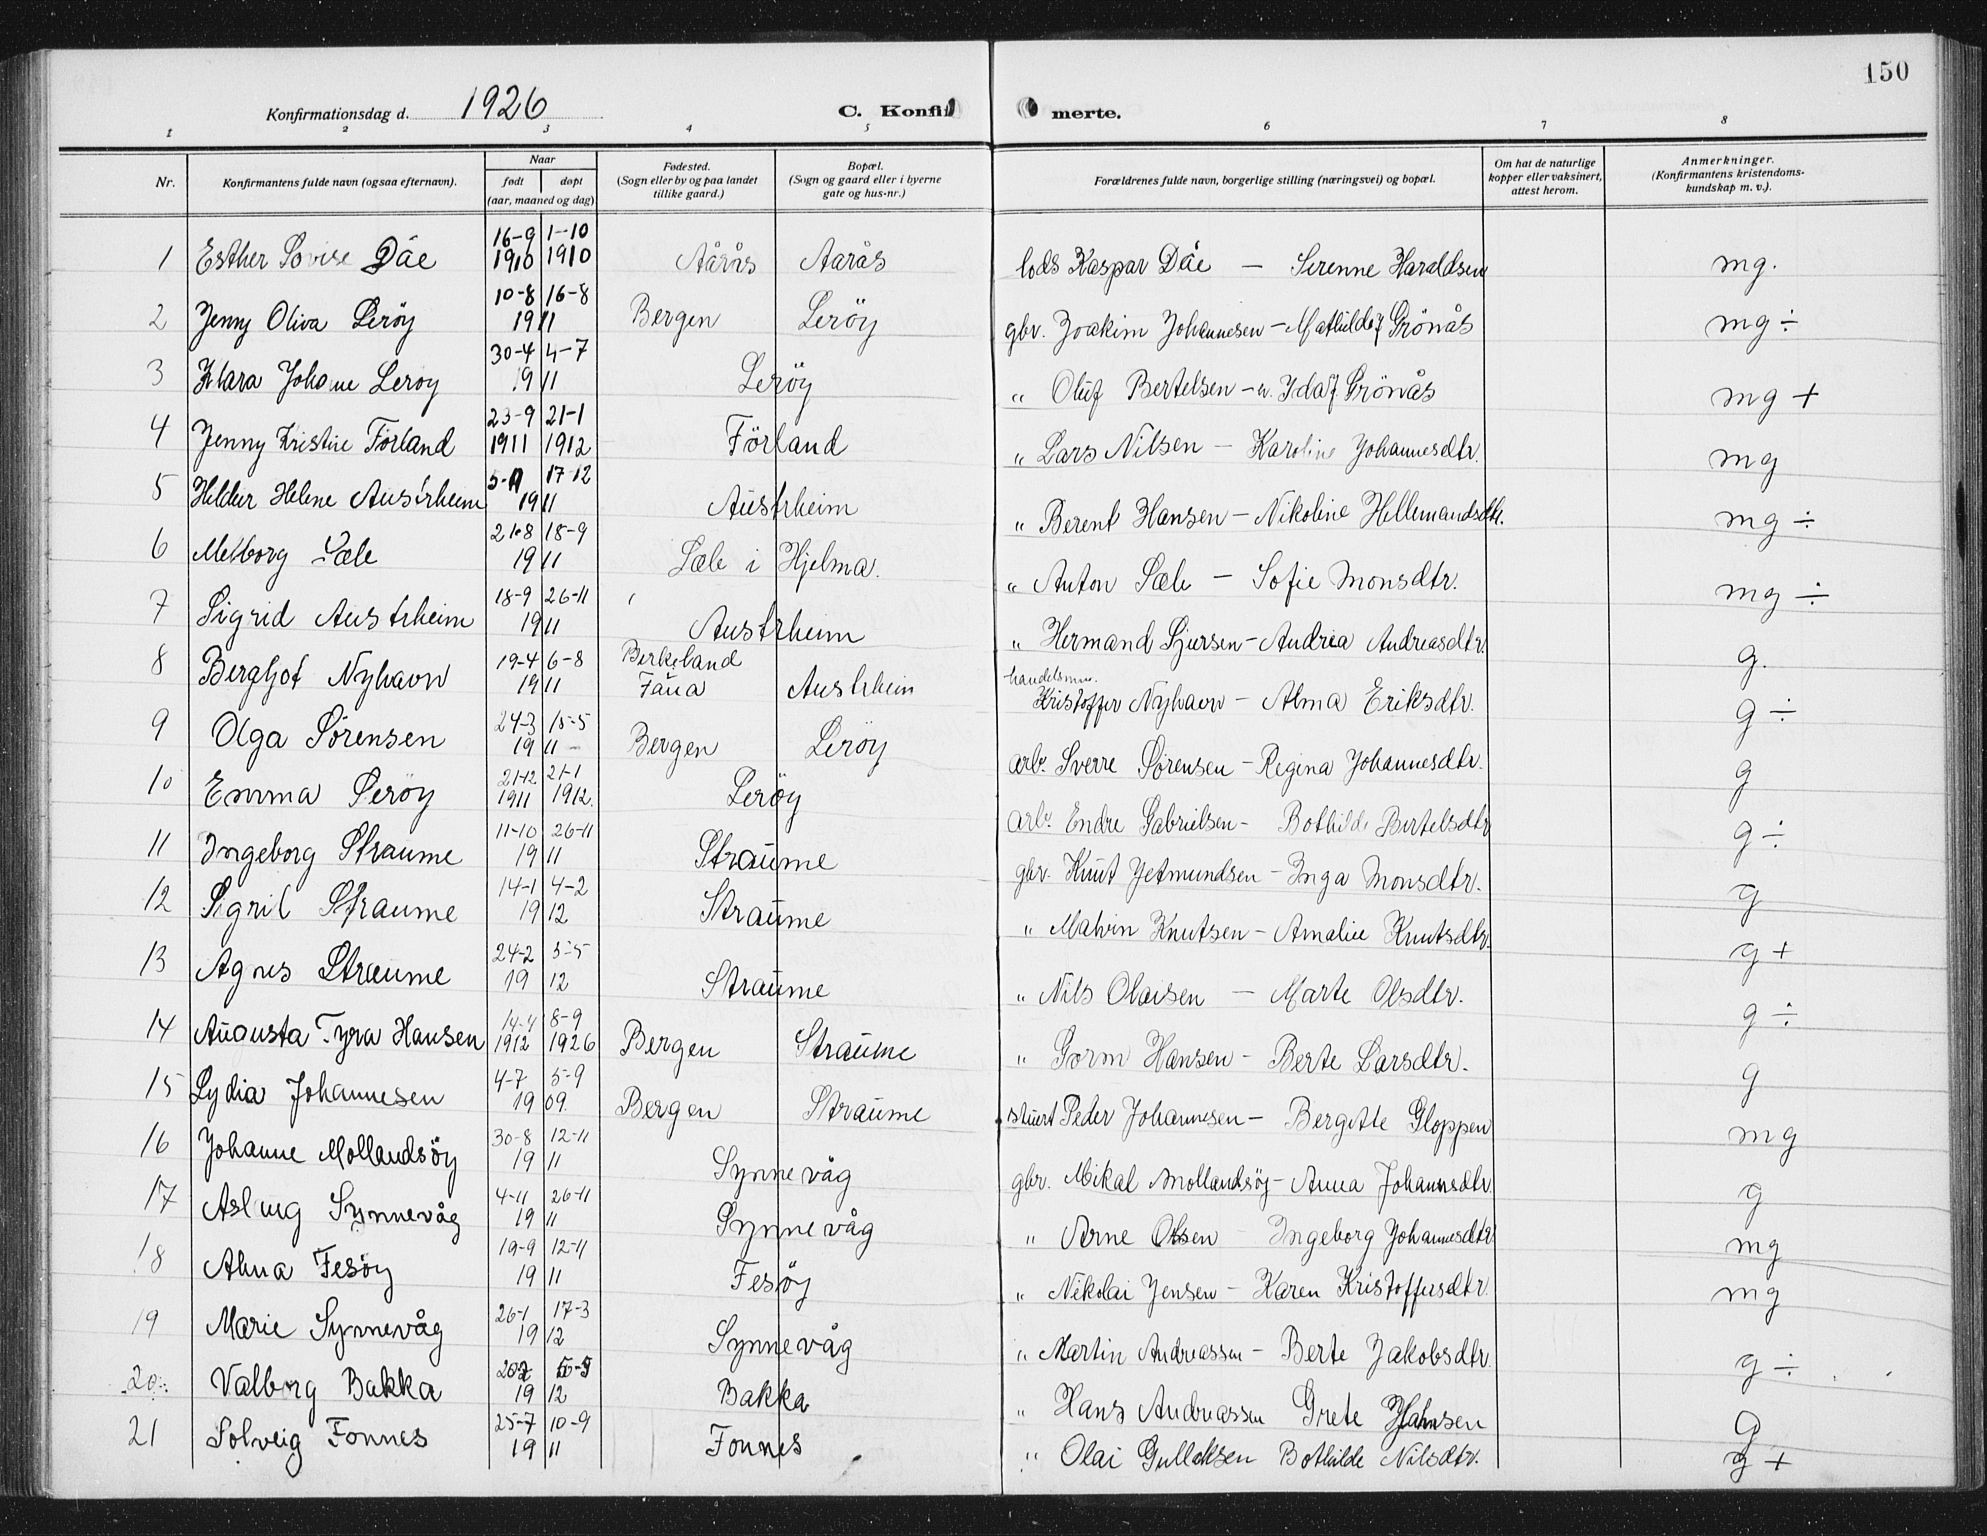 150
Konfirmationsdag d. 1926 C. Konfir merte.
1 2 3 4 5 6 7 8
Nr. Konfirmantens fulde navn (ogsaa efternavn). Naar født døpt (aar, maaned og dag) Fødested. (Sogn eller by og paa landet tillike gaard.) Bopæl. (Sogn og gaard eller i byerne gate og hus-nr.) Forældrenes fulde navn, borgerlige stilling (næringsvei) og bopæl. Om hat de naturlige kopper eller vaksinert, attest herom. Anmerkninger. (Konfirmantens kristendoms-kundskap m. v.).
1 Esther Lovise Dåe 16-9 1910 1-10 1910 Aårås Aarås lods Kaspar Dåe — Serenne Haraldsen mg.
2 Jenny Oliva Lerøy 10-8 16-8 1911 Bergen Lerøy gbr. Joakim Johannesen — Mathilde f Grönås mg ÷
3 Klara Johane Leroy 30-4 4-7 1911 Lerøy " Oluf Bertelsen — Ida f. Grönås mg +
4 Jenny Kristine Förland 23-9 1911 21-1 1912 Förland " Lars Nilsen — Karoline Johannesdtr. mg
5 Helene Austrheim 17-12 1911 Austrheim " Berent Hansen — Nikoline Hellemandsdtr. mg ÷
6 Sæle 21-8 18-9 1911 Sæle i Hjelma. " Anton Sæle — Sofie Monsdtr. mg ÷
7 Sigrid Austrheim 18-9 26-11 1911 Austrheim " Hermand — Andrea Andreasdtr. g.
8 Bergljot Nyhavn 19-4 6-8 1911 Birkeland Fana Austrheim handelsmn. Kristoffer Nyhavn — Alma Eriksdtr. g ÷
9 Olga Sørensen 24-3 15-5 1911 Bergen Lerøy arb. Sverre Sørensen — Regina Johannesdtr. g
10 Emma Lerøy 21-12 1911 21-1 1912. Lerøy arb. Endre Gabrielsen — Bothilde Bertelsdtr g ÷
11 Ingeborg Straume 11-10 26-11 1911 Straume gbr. Knut Jetmundsen — Inga Monsdtr. g
12 Sigril Straume 14-1 4-2 1912 Straume " Malvin Knutsen — Amalie Knutsdtr. g +
13 Agnes Straume 24-2 5-5 1912 Straume " Nils Olaisen — Marte Olsdtr. g ÷
14 Augusta Tyra Hansen 1912 8-9 1926 Bergen Straume " Gorm Hansen — Berte Larsdtr. g
15 Lydia Johannesen 4-7 5-9 1909. Bergen Straume stuert Peder Johannesen — Bergitte Gloppen mg
16 Johanne Mollandsöy 30-8 12-11 1911 Synnevåg gbr. Mikal Mollandsöy — Anna Johannsdtr. g
17 Aslaug Synnevåg 4-11 26-11 1911 Synnevåg " Arne Olsen — Ingeborg Johannesdtr mg
18 Alma Fesöy 19-9 12-11 1911 Fesöy " Nikolai Jensen — Karen Kristoffersdtr. mg
19 Marie Synnevåg 26-1 17-3 1912 Synnevåg " Martin Andreassen — Berte Jakobsdtr. g ÷
20. Valborg Bakka 1912 Bakka " Hans Andreassen Grete Hansen g
21 Solveig Fonnes 25-7 10-9 1911 Fonnes " Olai Gullaksen Bothilde Nilsdtr. g +